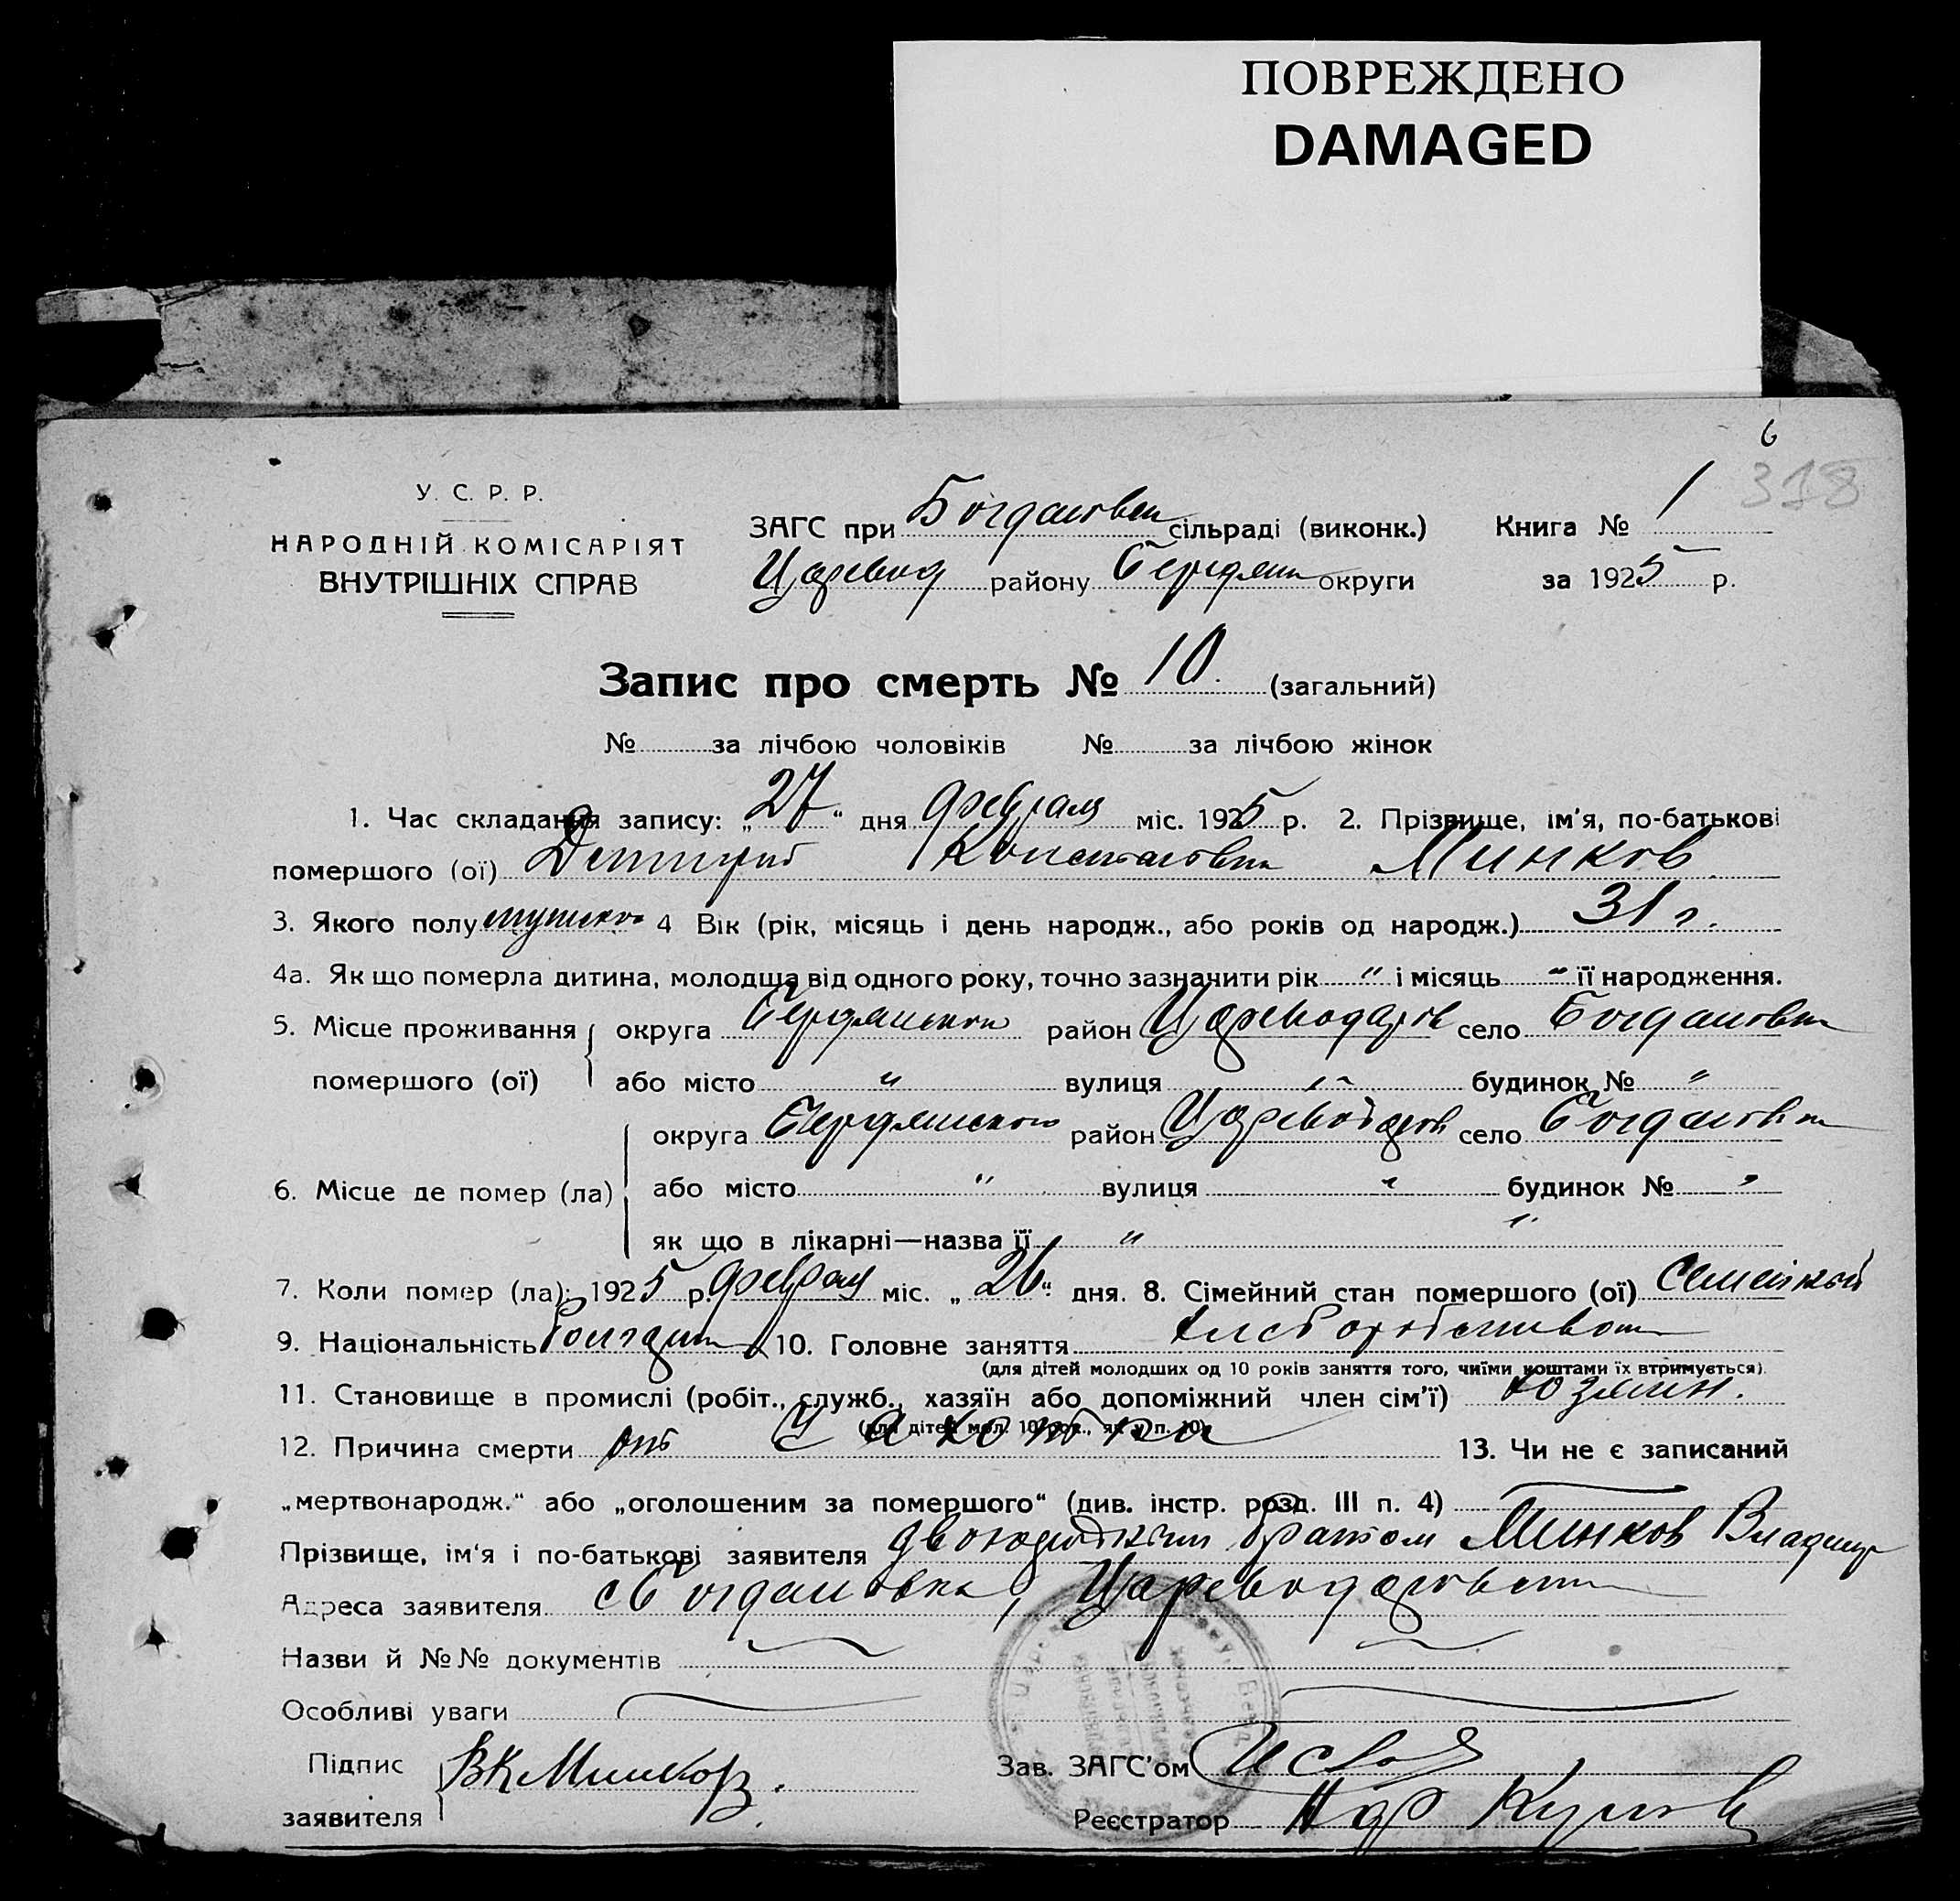 ПОВРЕЖДЕНО
DAMAGED
6
318
У. С. Р. Р.
НАРОДНІЙ КОМІСАРІЯТ
ВНУТРІШНІХ СПРАВ
ЗАГС при Богдановск сільраді (виконк.) Книга № 1
Царевод району Бердянск округи за 1925 р.
Запис про смерть № 10 (загальний)
№ за лічбою чоловіків № за лічбою жінок
1. Час складання запису: „27“ дня февраля міс. 1925 р. 2. Прізвище, ім'я, по-батькові
помершого (ої) Дмитрий Константинович Минков
3. Якого полу мужско 4 Вік (рік, місяць і день народж., або років од народж.) 31 г.
4а. Як що померла дитина, молодща від одного року, точно зазначити рік " і місяць " її народження.
5. Місце проживання округа Бердянского район Цареводаров село Богдановка
помершого (ої) або місто " вулиця " будинок № "
округа Бердянского район Цареводаров село Богдановка
6. Місце де помер (ла) або місто " вулиця " будинок № "
як що в лікарні—назва її "
7. Коли помер (ла): 1925 р. февраля міс. „26“ дня. 8. Сімейний стан помершого (ої) Семейный
9. Національність Болгарин 10. Головне заняття
(для дітей молодших од 10 років заняття того, чиїми коштами їх втримується)
11. Становище в промислі (робіт., служб., хазяїн або допоміжний член сім'ї) хозяин.
(для дітей мол. 10 рок., як у п. 10)
12. Причина смерти от Чахотки 13. Чи не є записаний
„мертвонародж.“ або „оголошеним за помершого“ (див. інстр. розд. III п. 4)
Прізвище, ім'я і по-батькові заявителя двоюродным братом Минков Владимир
Адреса заявителя с Богдановка, Цареводаровск
Назви й №№ документів
Особливі уваги
Підпис ВКМинковъ. Зав. ЗАГС'ом
заявителя Реєстратор